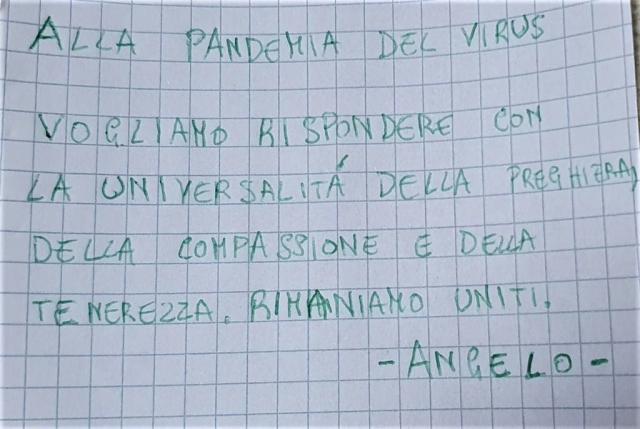 ALLA PANDEMIA DEL VIRUS
VOGLIAMO RISPONDERE CON
LA UNIVERSALITÁ DELLA PREGHIERA,
DELLA COMPASSIONE E DELLA
TENEREZZA. RIMANIAMO UNITI.
-ANGELO-